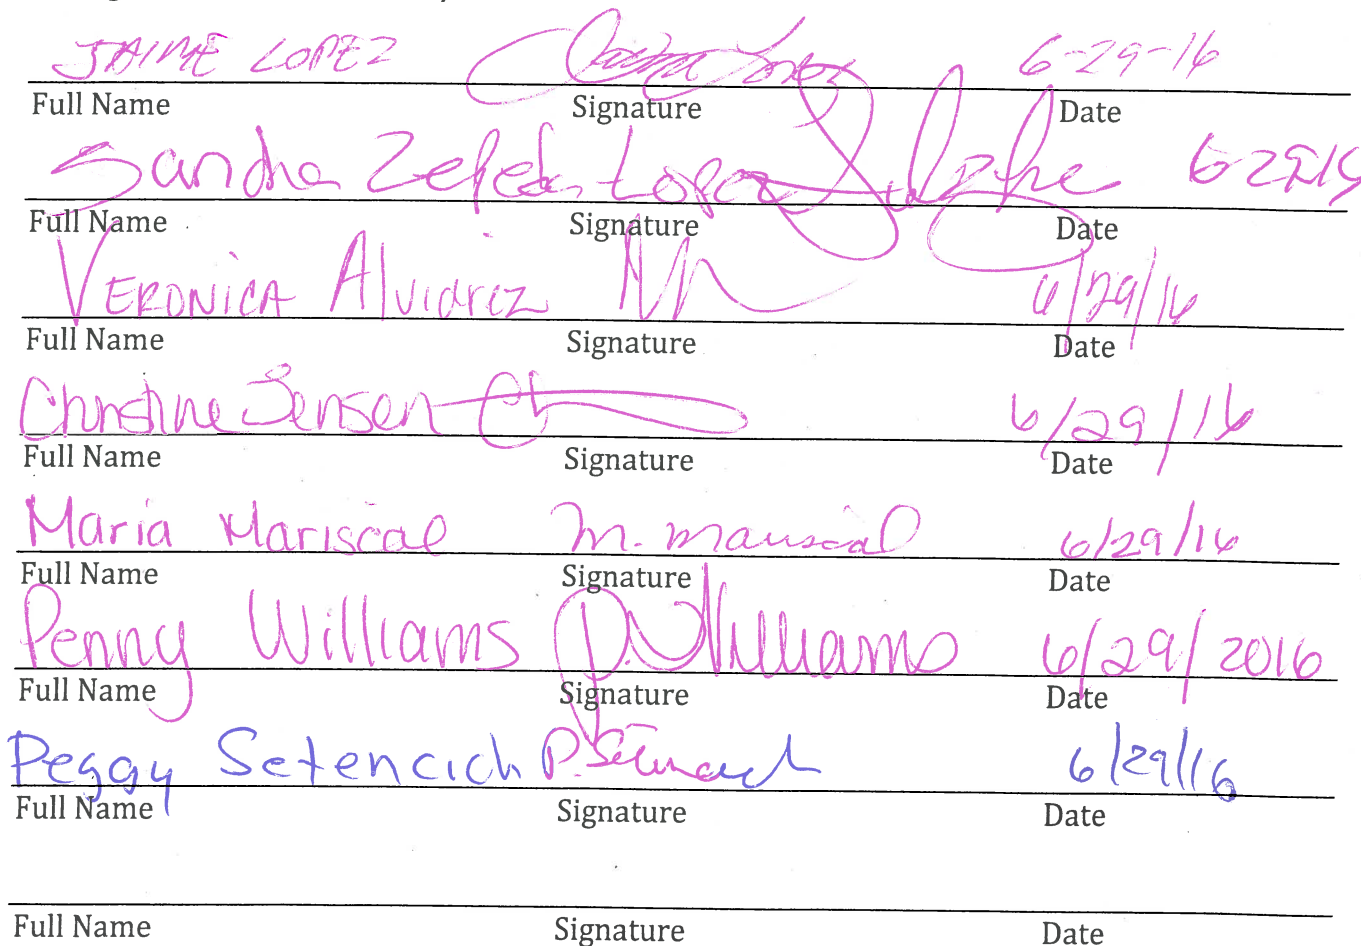 JAIME LOPEZ Jaime Lopez 6-29-16
Full Name Signature Date
Sandra Lopez
Full Name Signature Date
VERONICA Alvidrez 6/29/16
Full Name Signature Date
Christine Jensen 6/29/16
Full Name Signature Date
Maria Mariscal M. Mariscal 6/29/16
Full Name Signature Date
Penny Williams P. Williams 6/29/2016
Full Name Signature Date
Peggy Setencich P. Setencich 6/29/16
Full Name Signature Date
Full Name Signature Date